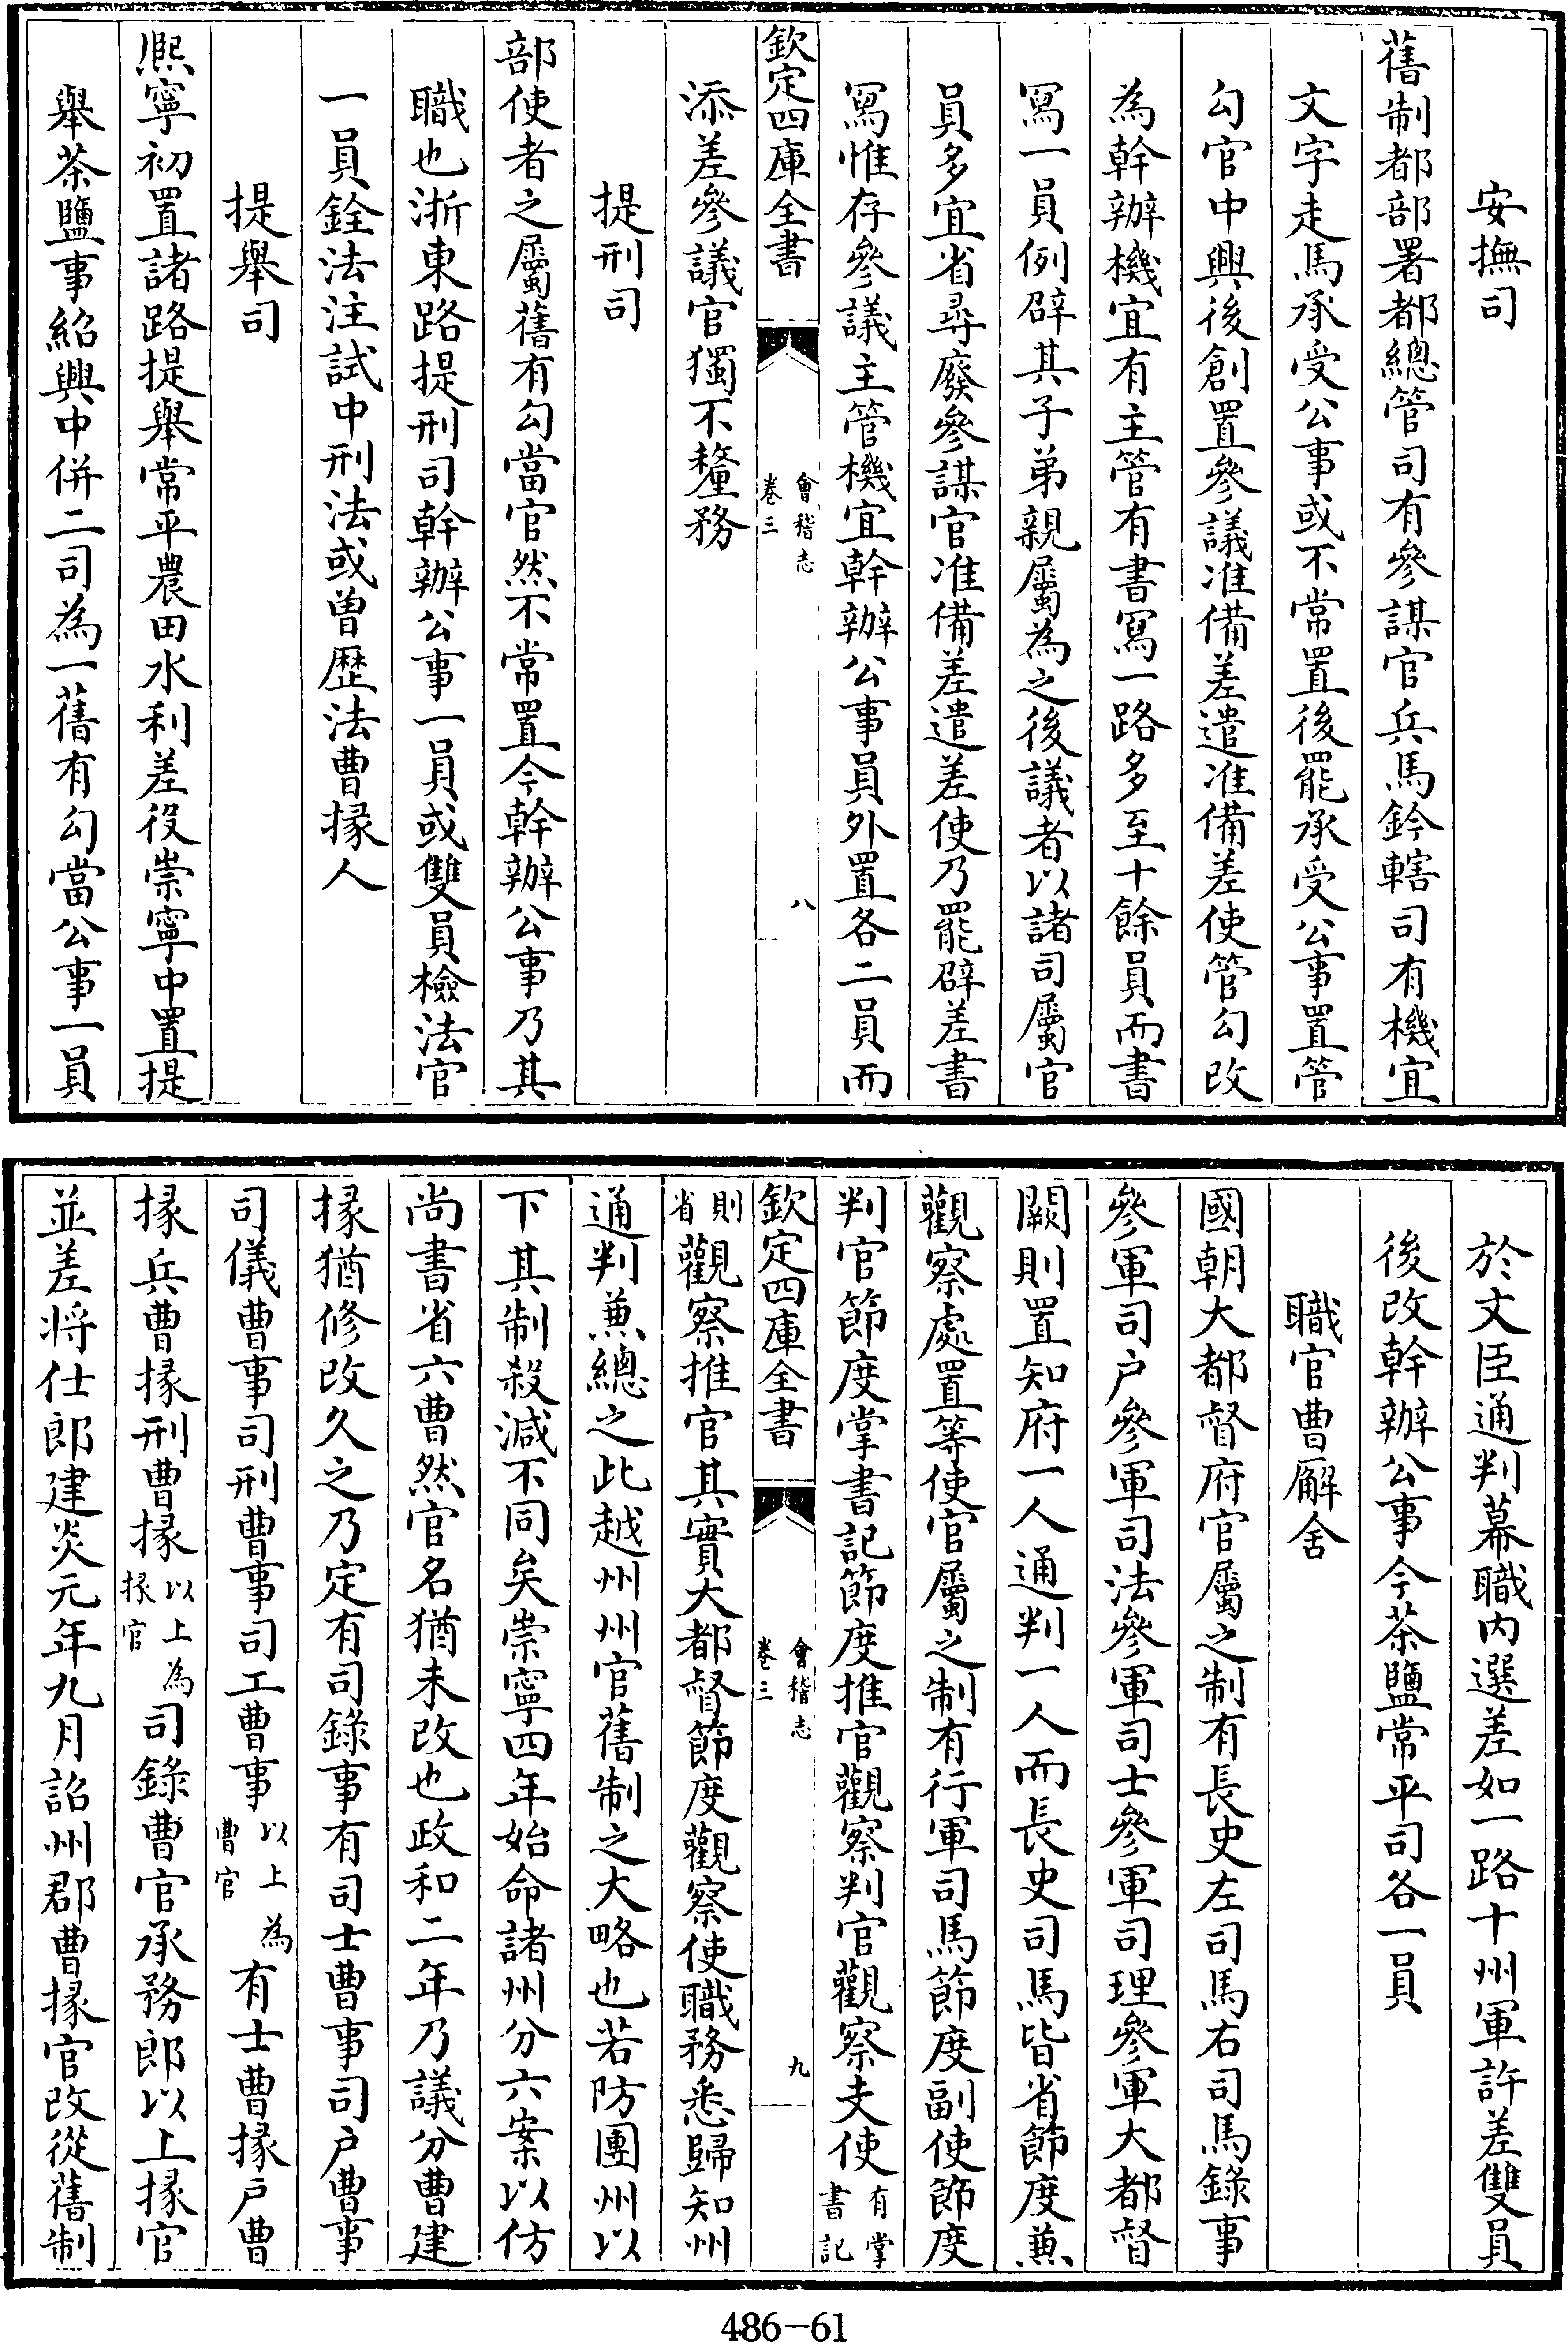 安撫司
舊制都部署都總管司有參謀官兵馬鈐轄司有機宜
文字走馬承受公事或不常置後罷承受公事置管
勾官中興後創置參議准備差遣准備差使管勾改
為幹辦機宜有主管有書寫一路多至十餘員而書
寫一員例辟其子弟親屬為之後議者以諸司屬官
員多宜省尋廢參謀官准備差遣差使乃罷辟差書
寫惟存參議主管機宜幹辦公事員外置各二員而
欽定四庫全書
會稽志
卷三
八
添差參議官獨不釐務
提刑司
部使者之屬舊有勾當官然不常置今幹辦公事乃其
職也浙東路提刑司幹辦公事一員或雙員檢法官
一員銓法注試中刑法或曾歷法曹掾人
提舉司
熈寧初置諸路提舉常平農田水利差役崇寧中置提
舉茶鹽事紹興中併二司為一舊有勾當公事一員
於文臣通判幕職内選差如一路十州軍許差雙員
後改幹辦公事今茶鹽常平司各一員
職官曹廨舍
國朝大都督府官屬之制有長史左司馬右司馬錄事
參軍司户參軍司法參軍司士參軍司理參軍大都督
闕則置知府一人通判一人而長史司馬皆省節度兼
觀察處置等使官屬之制有行軍司馬節度副使節度
判官節度掌書記節度推官觀察判官觀察支使有掌書記
欽定四庫全書
會稽志
卷三
九
則省觀察推官其實大都督節度觀察使職務悉歸知州
通判兼總之此越州州官舊制之大略也若防團州以
下其制殺減不同矣崇寧四年始命諸州分六案以仿
尚書省六曹然官名猶未改也政和二年乃議分曹建
掾猶修改久之乃定有司錄事有司士曹事司户曹事
司儀曹事司刑曹事司工曹事以上為曹官有士曹掾户曹
掾兵曹掾刑曹掾以上為掾官司錄曹官承務郎以上掾官
並差將仕郎建炎元年九月詔州郡曹掾官改從舊制
486-61